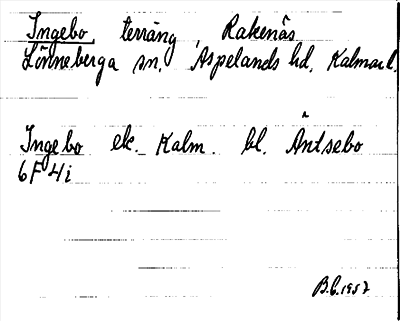 Ingebo, terräng, Rakenäs
Lönneberga sn. Aspelands hd. Kalmar l.
Ingebo ek. Kalm. bl. Äntsebo
6F4i
B.C. 1957